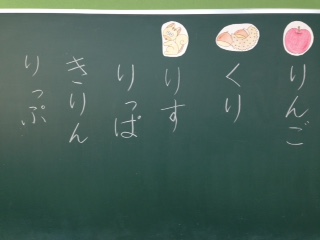 りんご
くり
りす
りっぱ
きりん
りっぷ